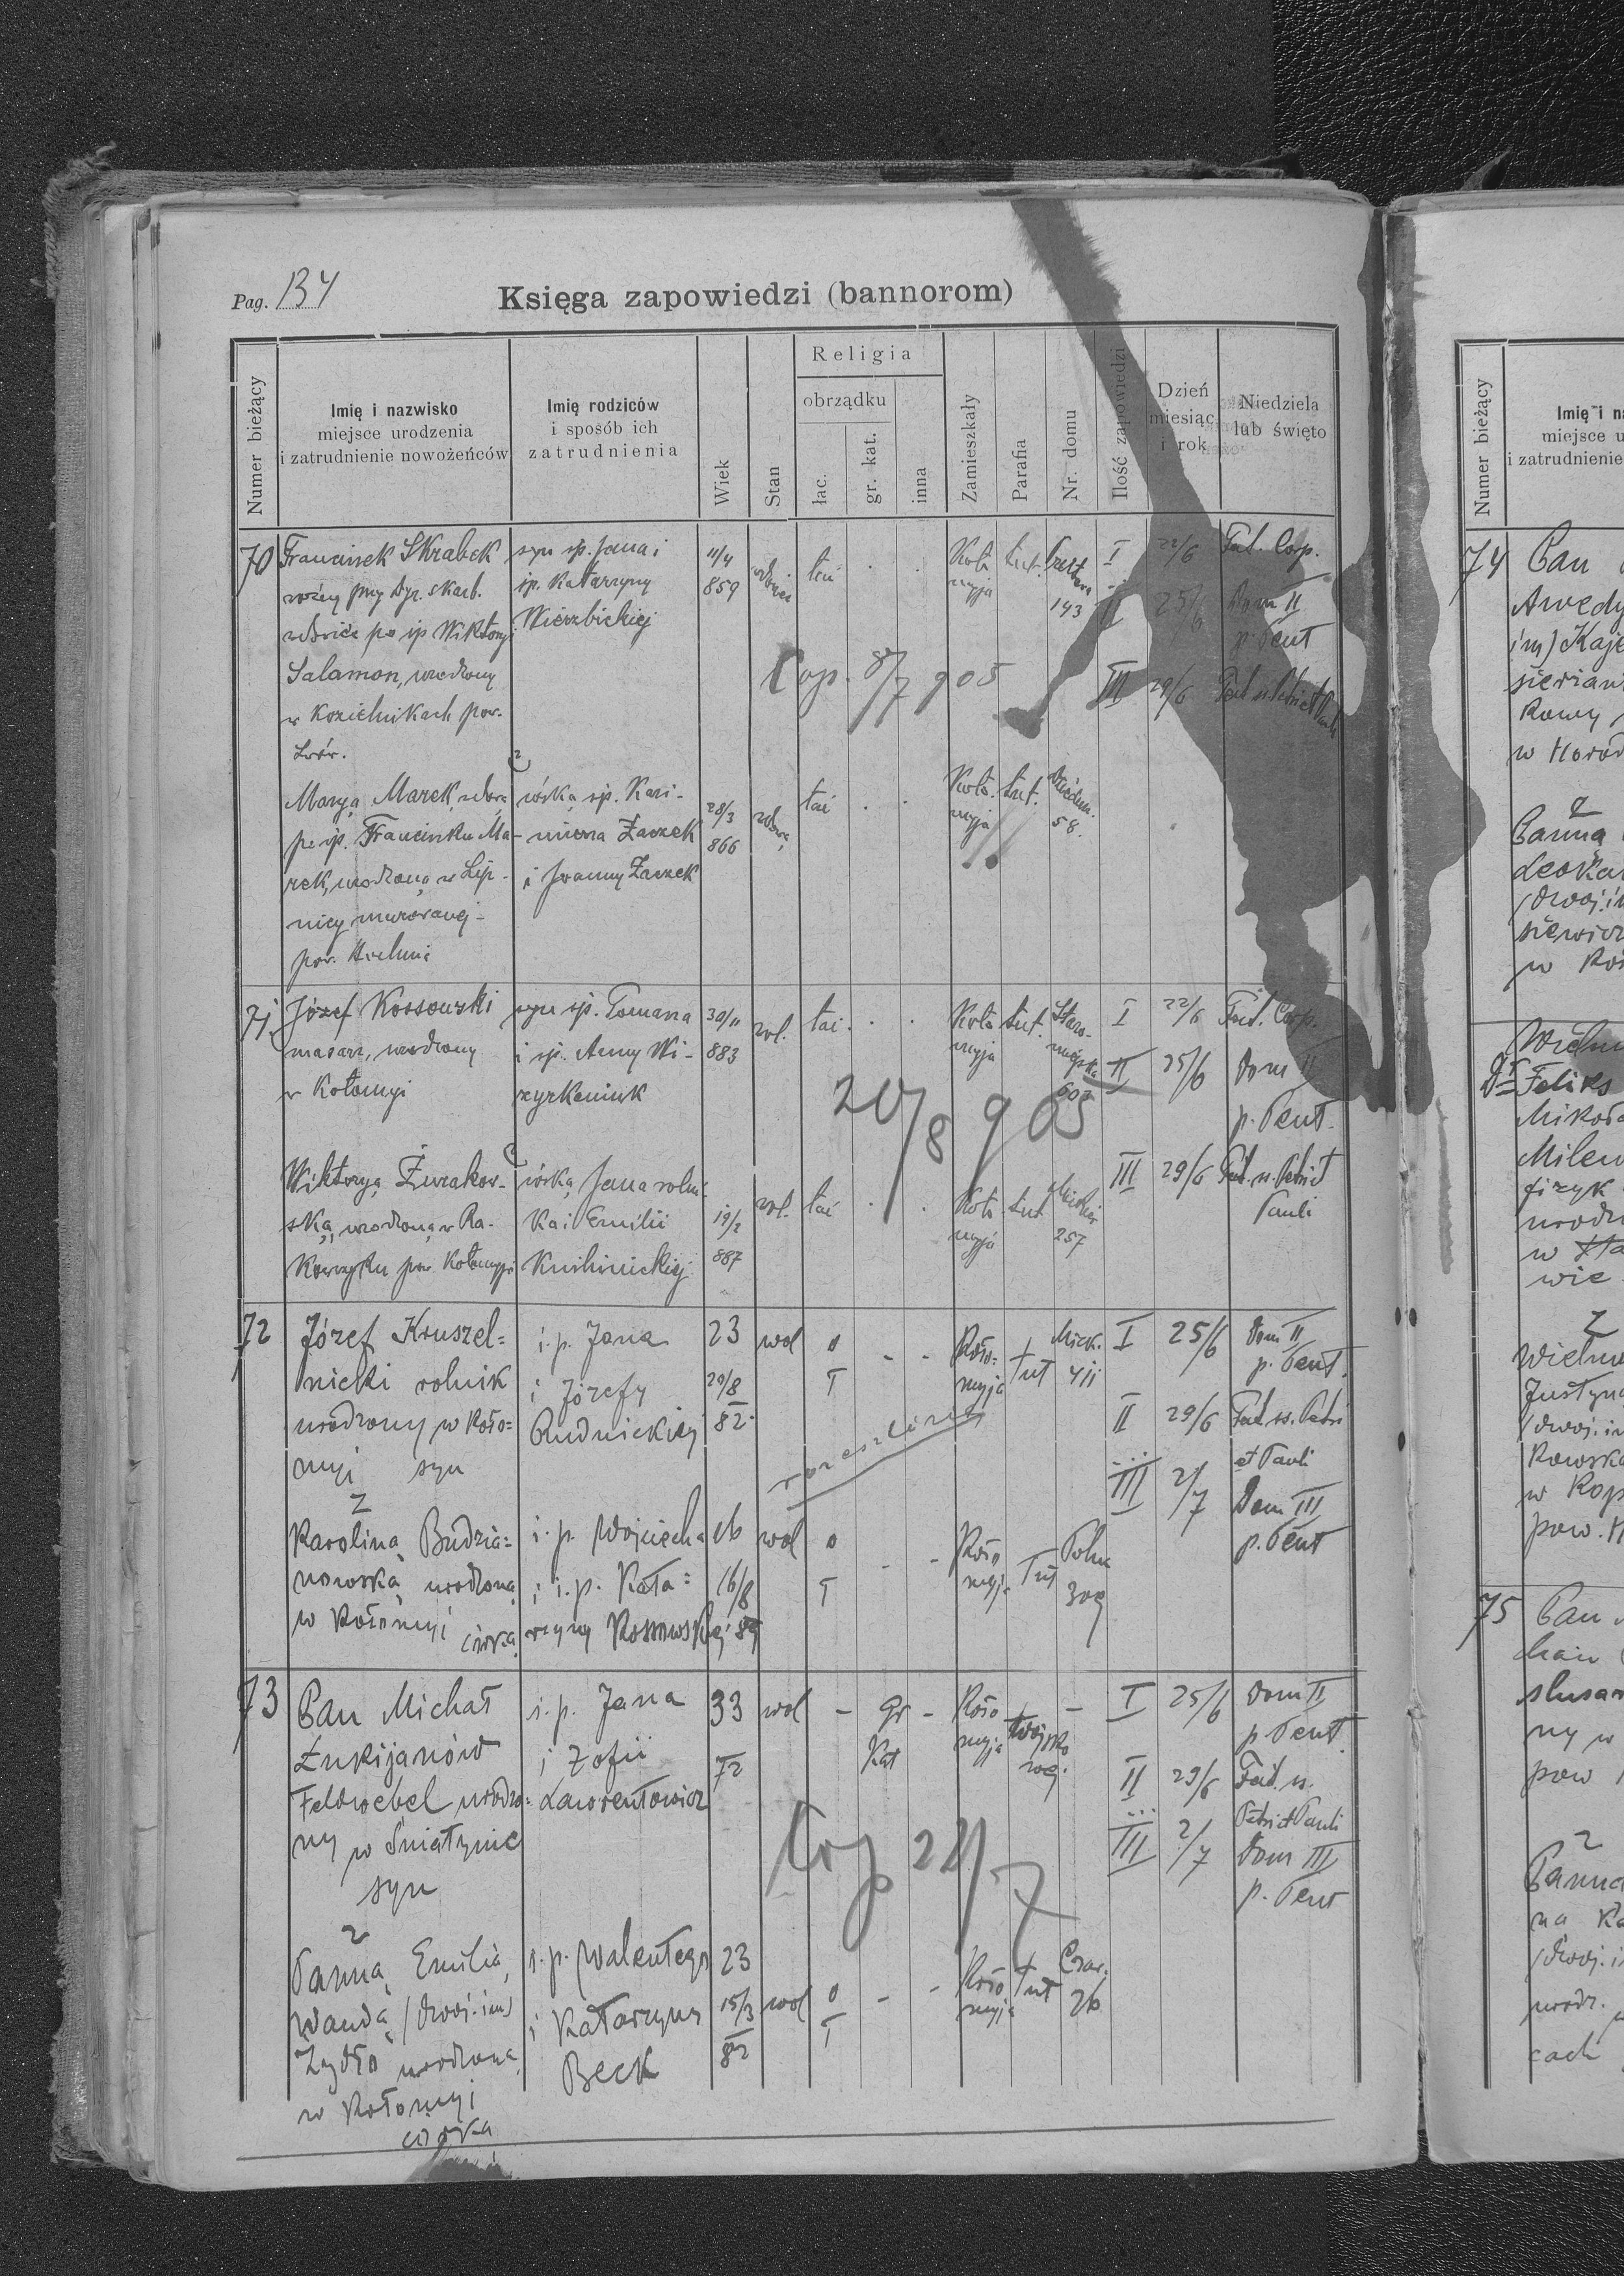 Pag. 134
Księga zapowiedzi (bannorom)
Numer bieżący
Imię i nazwisko
miejsce urodzenia
i zatrudnienie nowożeńców
Imię rodziców
i sposób ich
zatrudnienia
Wiek
Stan
Religia
obrządku
łac.
gr. kat.
inna
Zamieszkały
Parafia
Nr. domu
Ilość zapowiedzi
Dzień
miesiąc
i rok
Niedziela
lub święto
70
Franciszek Skrabek
woźny przy Dyr. skarb.
wdowiec po śp Wiktoryi
Salamon, urodzony
w Kozielnikach pow.
Lwów.
syn śp. Jana i
śp. Katarzyny
Wierzbickiej
11/4
859
wdowiec
łać
Koło
myja
tut.
143
I 22/6 Fest. Corp.
II 25/6 Dom II
p. Pent
III 29/6
Cop. 8/7 905
z
Marya Marek, wdowa
po śp. Franciszku Ma-
rek, urodzona w Lip-
nicy murowanej
pow. Bochnia
córka śp. Kazi-
mierza Żaczek
i Joanny Żaczek
28/3
866
wdowa
łać
Koło
myja
tut.
58.
71.
Józef Kossowski
masarz, urodzony
w Kołomyi
syn śp. Tomasza
i śp. Anny Wi-
30/11
883
wol.
łać
Koło
myja
tut.
Staro-
miejska
602
I 22/6 Fest. Corp.
II 25/6 Dom II
p. Pent.
III 29/6 Fest. ss. Petri et
Pauli
20/8 905
z
Wiktorya Żurakow-
ska, urodzona w Ra-
kowczyku pow. Kołomyja
córka Jana rolni-
ka i Emilii
Knihinickiej
19/2
887
wol.
łać
Koło
myja
tut.
257
72
Józef Kruszel=
nicki rolnik
urodzony w Koło=
myi syn
ś. p. Jana
i Józefy
Rudnickiej
23
29/8
82
wol
o
ł
Koło=
myja
tut
Mick.
411
I 25/6 Dom II
p. Pent.
II 29/6 Fest. ss. Petri
et Pauli
III 2/7 Dom III
p. Pent
z
Karolina Budzia=
nowska urodzona
w Kołomyi córka
ś. p. Wojciecha
i ś. p. Kata=
rzyny Kossowskiej
16
16/8
89
wol
o
ł
Koło
myja
tut
309
73
Pan Michał
Łukijanów
Feldwebel urodzo=
ny w Śniatynie
syn
ś. p. Jana
i Zofii
Lawrentowicz
33
72
wol
-
gr
Kat
-
Koło
myja
Wojsko
wej.
-
I 25/6 Dom II
p Pent
II 29/6 Fest. ss.
Petri et Pauli
III 2/7 Dom III
p. Pent
Cop 22/7
z
Panna Emilia,
Wanda (dwoj. im)
Żydło urodzona
w Kołomyi
córka
ś. p. Walentego
i Katarzyny
Beck
23
15/3
82
wol
o
ł
Koło
myja
tut
Czar.
26
Numer bieżący
Imię i n
miejsce u
i zatrudnienie
74
Pan
w Horod
z
Panna
Dr Feliks
Mikoła
Milew
fizyk
w
wic
z
Justyna
w Kop
pow. H
75
Pan
ślusar
ny w
pow
z
Panna
na Ka
(dwoj. i
urodz.
cach